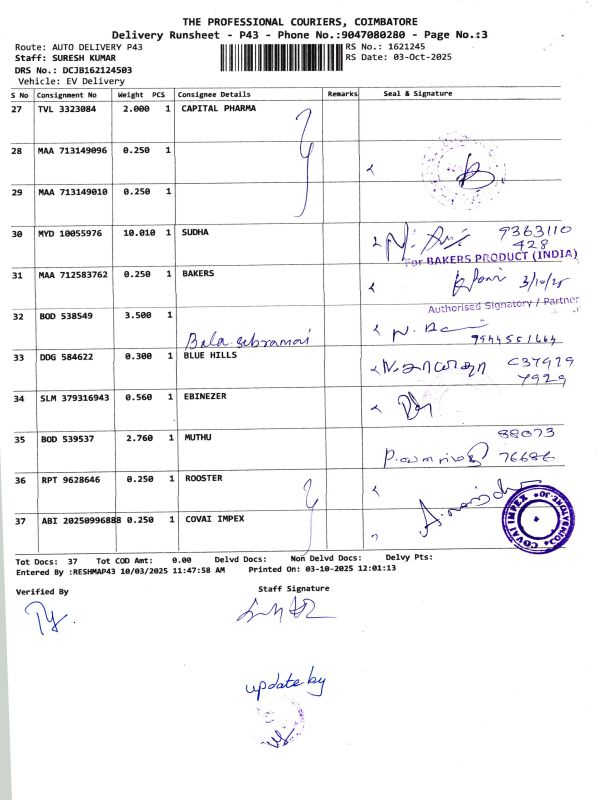 THE PROFESSIONAL COURIERS, COIMBATORE
Delivery Runsheet - P43 - Phone No.:9047080280 - Page No.:3
Route: AUTO DELIVERY P43 RS No.: 1621245
Staff: SURESH KUMAR RS Date: 03-Oct-2025
DRS No.: DCJB162124503
Vehicle: EV Delivery
S No Consignment No Weight PCS Consignee Details Remarks Seal & Signature
27 TVL 3323084 2.000 1 CAPITAL PHARMA
28 MAA 713149096 0.250 1
29 MAA 713149010 0.250 1
30 MYD 10055976 10.010 1 SUDHA 9363110
428
For BAKERS PRODUCT (INDIA)
31 MAA 712583762 0.250 1 BAKERS 3/10/25
Authorised Signatory / Partner
32 BOD 538549 3.500 1
Bala.subramani 9944551664
33 DDG 584622 0.300 1 BLUE HILLS C37929
7929
34 SLM 379316943 0.560 1 EBINEZER
35 BOD 539537 2.760 1 MUTHU 88073
76686
36 RPT 9628646 0.250 1 ROOSTER
37 ABI 20250996888 0.250 1 COVAI IMPEX
COVAI IMPEX
Tot Docs: 37 Tot COD Amt: 0.00 Delvd Docs: Non Delvd Docs: Delvy Pts:
Entered By :RESHMAP43 10/03/2025 11:47:58 AM Printed On: 03-10-2025 12:01:13
Verified By Staff Signature
update by